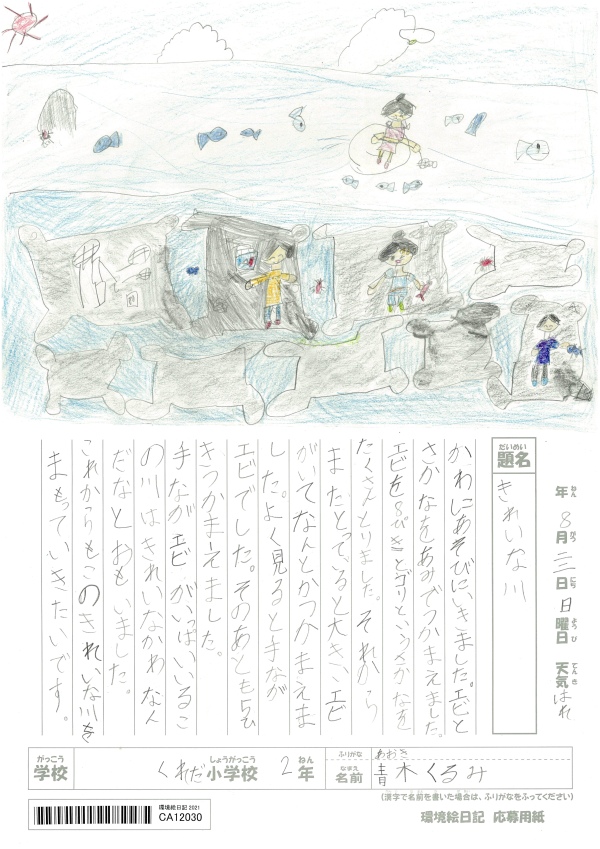 年ねん 8月がつ 二二日にち 日曜日ようび 天気てんき はれ
題名だいめい
きれいな川
かわにあそびにいきました。エビと
さかなをあみでつかまえました。
エビを8ぴきとゴリというさかなを
たくさんとりました。それから
またとっていると大きいエビ
がいてなんとかつかまえま
した。よく見ると手なが
エビでした。そのあともう1ぴ
きつかまえました。
手ながエビがいっぱいいるこ
の川はきれいなかわなん
だなとおもいました。
これからもこのきれいな川を
まもっていきたいです。
学校がっこう くれだ 小学校しょうがっこう 2年ねん
ふりがな あおき
名前なまえ 青木くるみ
(漢字で名前を書いた場合は、ふりがなをふってください)
環境絵日記 2021
CA12030
環境絵日記 応募用紙